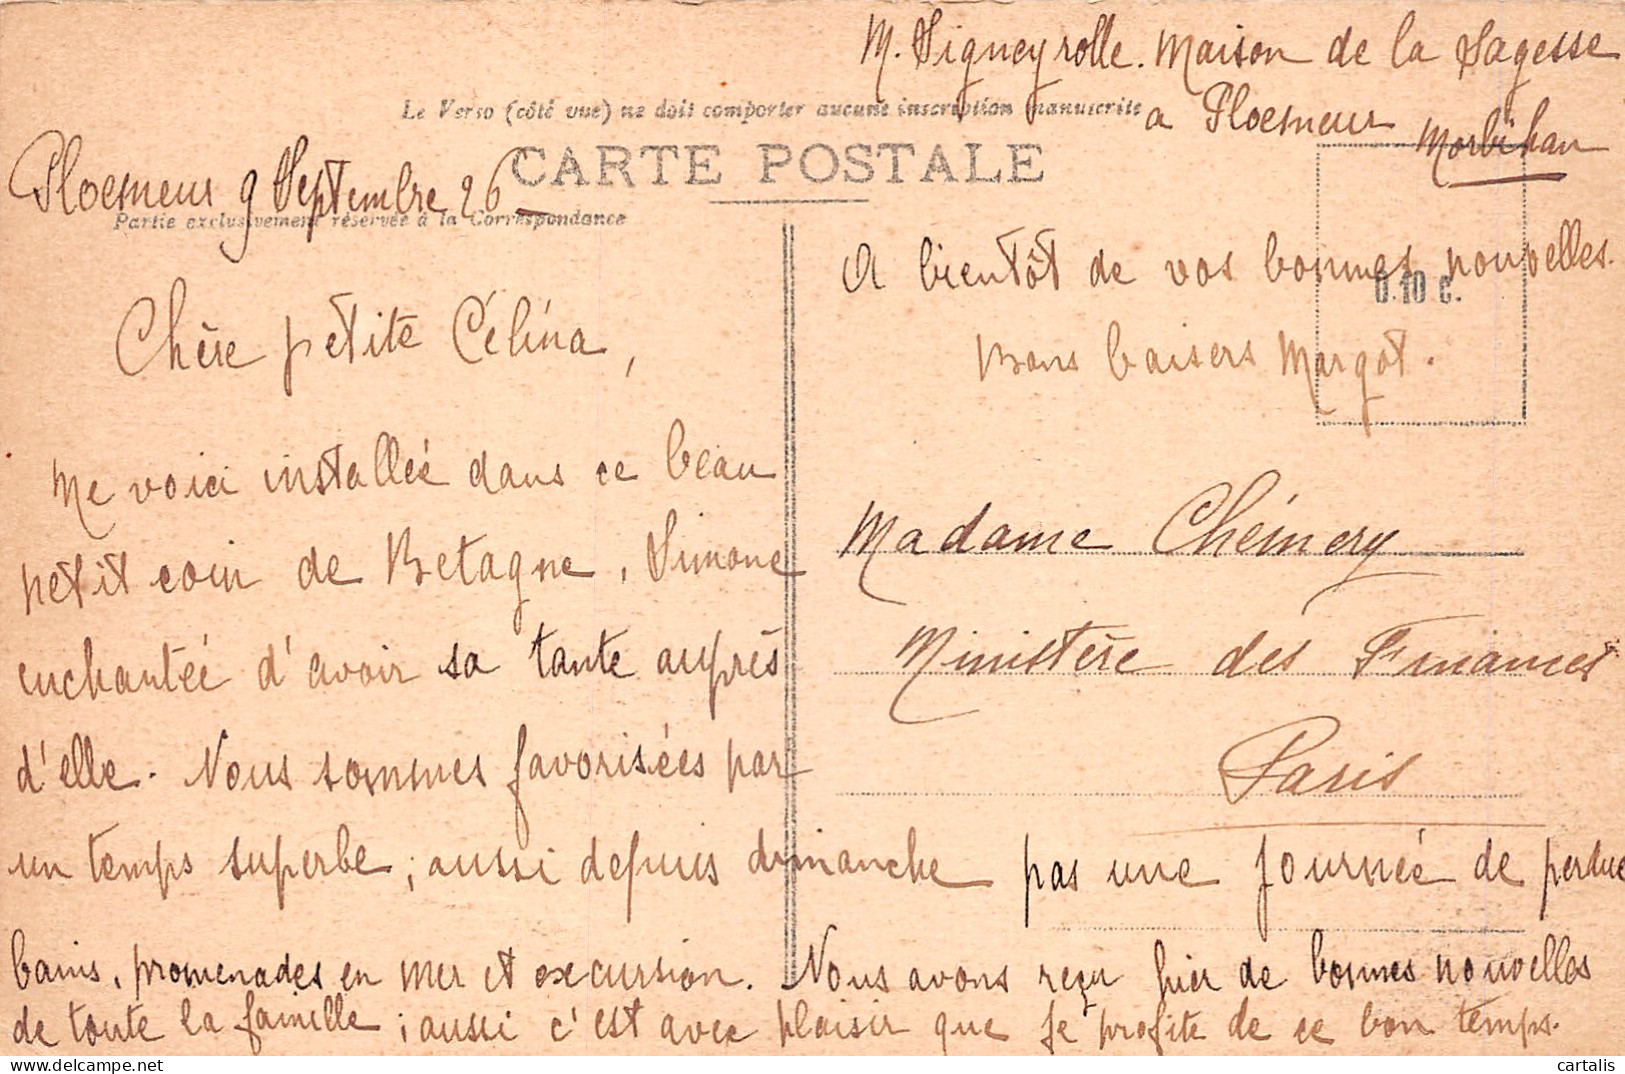 M. Signeyrolle. Maison de la Sagesse
à Ploemeur Morbihan
Le Verso (côté vue) ne doit comporter aucune inscription manuscrite
CARTE POSTALE
Ploemeur 9 Septembre 26
Partie exclusivement réservée à la Correspondance
Chère petite Célina,
Me voici installée dans ce beau
petit coin de Bretagne, Simone
enchantée d'avoir sa tante auprès
d'elle. Nous sommes favorisées par
un temps superbe, aussi depuis dimanche pas une journée de perdue
bains, promenades en mer et excursion. Nous avons reçu hier de bonnes nouvelles
de toute la famille ; aussi c'est avec plaisir que je profite de ce bon temps.
A bientôt de vos bonnes nouvelles.
Bons baisers Margot.
0.10 c.
Madame Chémery
Ministère des Finances
Paris
cartalis